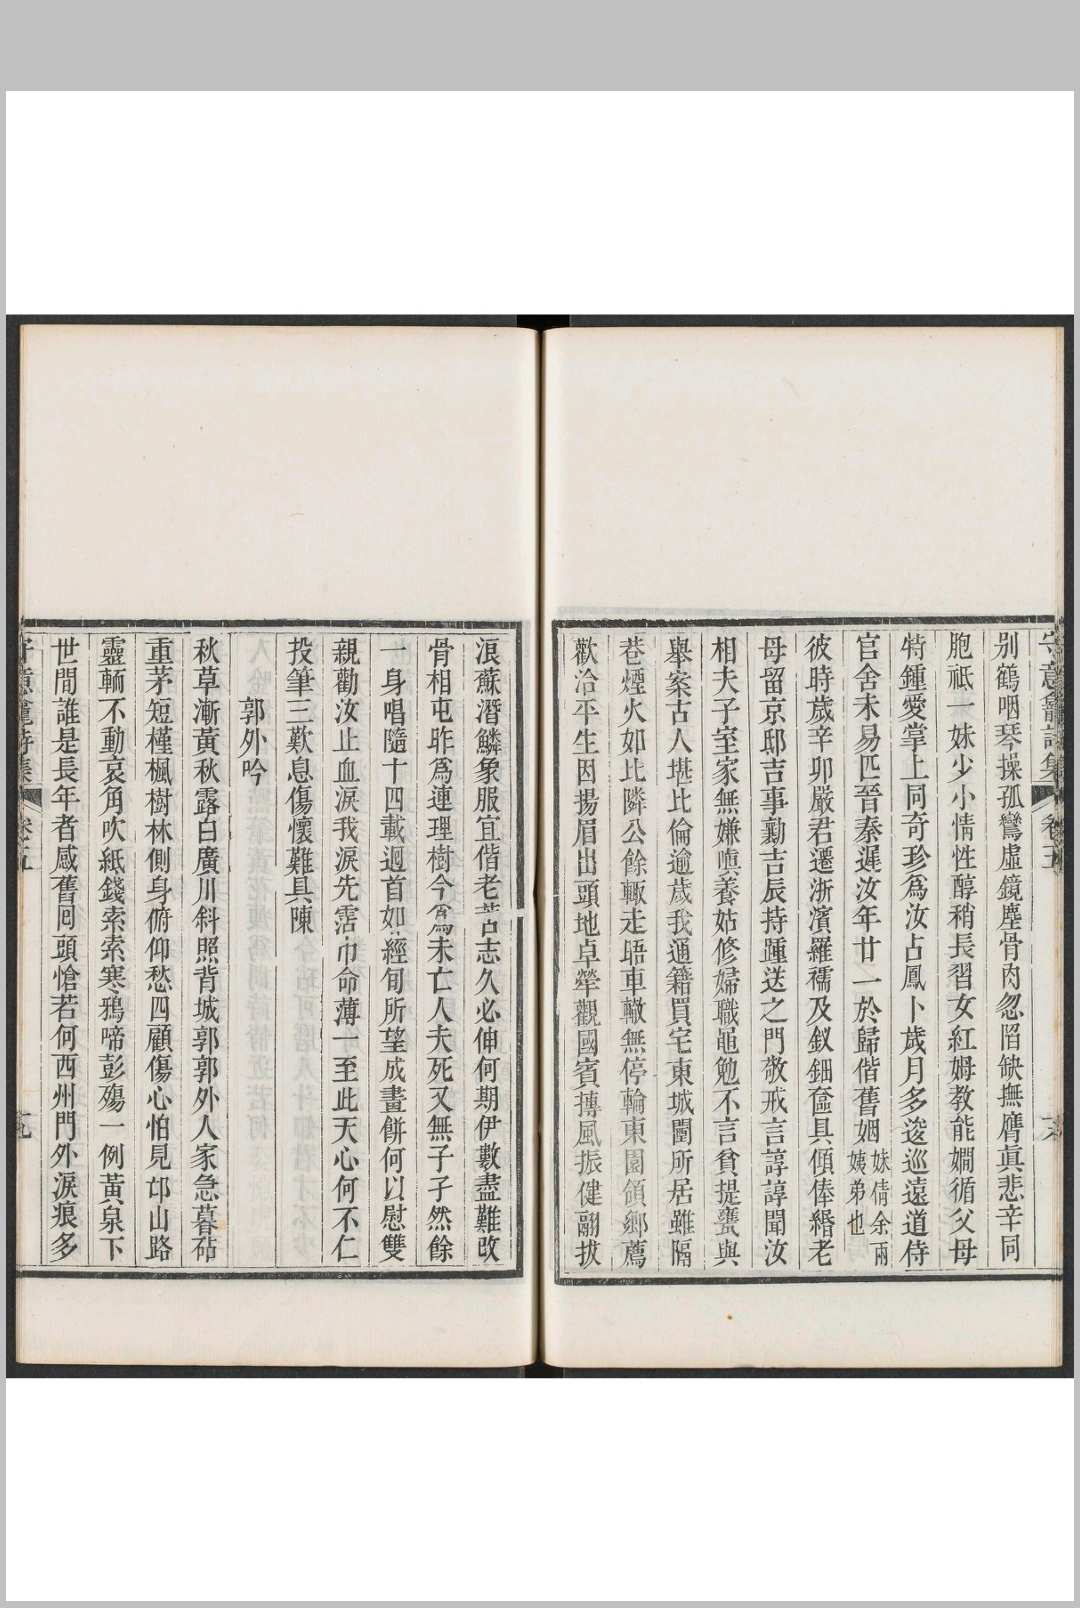 別鶴咽琴操孤鸞虛鏡塵骨肉忽陷缺撫膺眞悲辛同
胞祗一妹少小情性醇稍長習女紅姆教能嫺循父母
特鍾愛掌上同奇珍爲汝占鳳卜歲月多逡巡遠道侍
官舍未易匹晉秦遲汝年廿一於歸偕舊姻妹倩余兩姨弟也
彼時歲辛卯嚴君遷浙濱羅襦及釵鈿奩具傾俸緡老
母留京邸吉事勷吉辰持踵送之門敬戒言諄諄聞汝
相夫子室家無嫌嗔養姑修婦職黽勉不言貧提甕與
舉案古人堪比倫逾歲我通籍買宅東城闉所居雖隔
巷煙火如比隣公餘輙走晤車轍無停輪東園領鄉薦
歡洽平生因揚眉出頭地卓犖觀國賓摶風振健翮拔
浪蘇潛鱗象服宜偕老苦志久必伸何期伊數盡難改
骨相屯昨爲連理樹今爲未亡人夫死又無子孑然餘
一身唱隨十四載迴首如經旬所望成畫餅何以慰雙
親勸汝止血淚我淚先霑巾命薄一至此天心何不仁
投筆三歎息傷懷難具陳
郭外吟
秋草漸黃秋露白廣川斜照背城郭郭外人家急暮砧
重茅短槿楓樹林側身俯仰愁四顧傷心怕見邙山路
靈輀不動哀角吹紙錢索索寒鴉啼彭殤一例黃泉下
世間誰是長年者感舊囘頭愴若何西州門外淚痕多